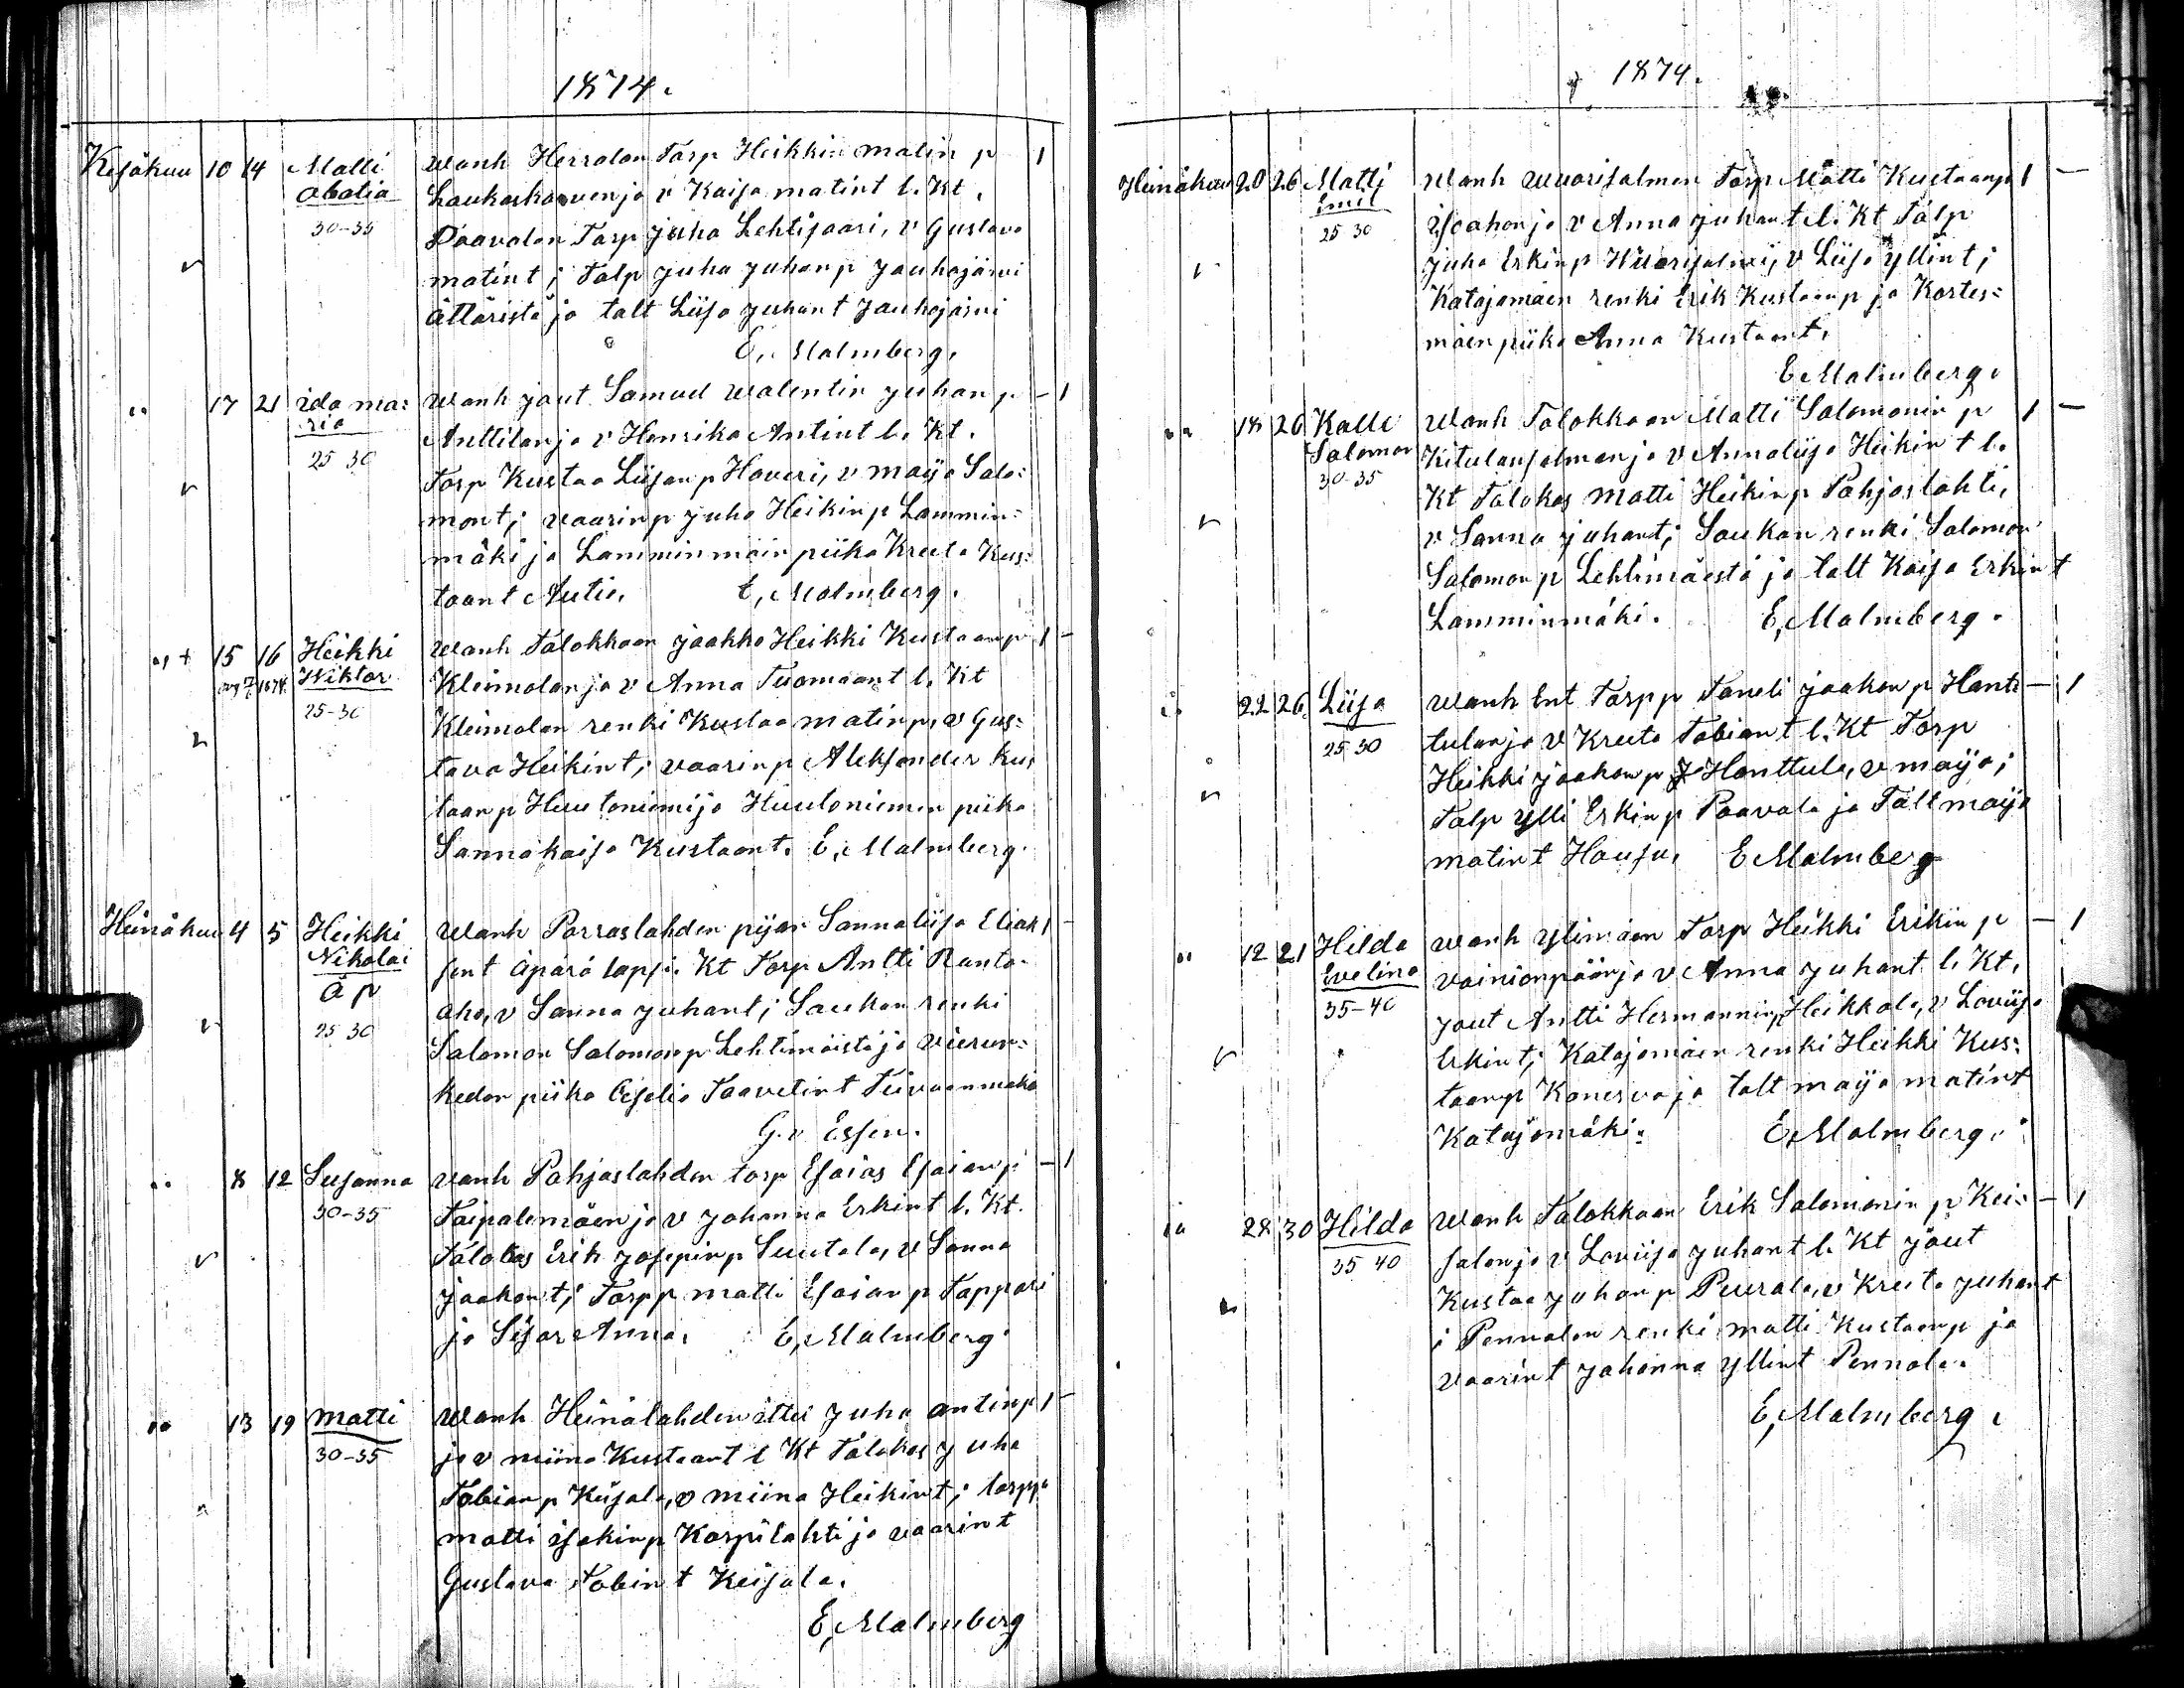 1874.
Kesäkuu 10 14 Matti wanh Herralan Torp Heikkin matin p 1
Abatia Laukaskorvenja v Kaisa matint l. Kt.
30-35 Paavolan Torp Juha Lehtisaari, v Gustava
matint; Talp Juha Juhanp Jauhojärvi
Ättäristä ja talt Liisa Juhant Jauhojärvi
E. Malmberg.
" 17 21 ida ma= wanh jout Samuel Walentin Juhan p - 1
ria Anttilanja v Henrika Antint l. Kt.
25 30 Torp Kustaa Liisanp Haveri, v maija Salo=
mont; vaarinp Juho Heikinp Lammin=
mäki ja Lamminmäin piika Kreeta Kus=
taant Autio. E, Malmberg.
" + 15 16 Heikki wanh Talokkaan Jaakko Heikki Kustaanp 1 -
1874. Wiktor Kleimolanja v Anna Tuomaant l. Kt
25-30 Kleimolan renki Kustaa matinp, v Gus=
tava Heikint; vaarinp Aleksander Kus
taanp Huutoniemi ja Huutoniemen piika
Sannakaisa Kustaant. E, Malmberg.
Heinäkuu 4 5 Heikki Wanh Porraslahden pijan Sannaliisa Eliak 1 -
Nikolai sent äpärä lapsi. Kt Torp Antti Ranta
Ä p aho, v Sanna Juhant; Saukon renki
25 30 Salomon Salomonp Lehtimäistä ja Vierun=
kedon piika Taavetint
G. v Essen.
" 8 12 Susanna wanh Pohjaslahden torp Esaias Esaianp - 1
30-35 Taipalemäen ja v Johanna Erkint l. Kt.
Talokas Erik Josepinp Suutala, v Sanna
Jaakont; Torpp matti Esaianp Tappari
ja Sisar Anna. E, Malmberg
" 13 19 matti wanh Heinälahden ittel Juho antinp 1 -
30-35 ja v miina Kustaant l Kt Talokas Juha
Tobianp Keisala, v miina Heikint; torpp
matti isakinp Karpilahti ja vaarint
Gustava Tobint Keisala.
E, Malmberg
1874.
Heinäkuu 20 26 Matti Wanh Wuorisalmen Torp Matti Kustaanp 1 -
Emil isoahonja v Anna Juhant l. Kt Talp
25 30 Juha Erkinp Wuorisalmi, v Liisa yllint;
Katajamäen renki Erik Kustaanp ja Kortes=
mäen piika Anna Kustaant.
E Malmberg.
" 18 26 Kalle Wanh Talokkaan Matti Salomonin p 1 -
Salomon Kitulansalmenja v Annaliisa Heikin t l.
30-35 Kt Talokas Matti Heikinp Pohjoslahti,
v Sanna Juhant; Saukon renki Salomon
Salomonp Lehtimäestä ja talt Kaisa Erkint
Lamminmäki. E, Malmberg.
" 22 26 Liisa Wanh Ent Torpp Taneli Jaakon p Hant - 1
25 30 tulanja v Kreeta Tobiant l. Kt Torp
Heikki Jaakonp Hanttula, v maija;
Talp ylli Erkinp Paavola ja Tallt maija
matint Hausu. E Malmberg
" 12 21 Hilda Wanh Ylimäen Torp Heikki Erikin p - 1
Evelina vainionpäänja v Anna Juhant l. Kt,
35-40 Jout Antti Hermanninp Heikkola, v Loviisa
Erkint; Katajamäen renki Heikki Kus=
taanp Konerva ja talt maija matint
Katajamäki. E, Malmberg.
" 28 30 Hilda Wanh Talokkaan Erik Salomonin p Kei= - 1
35 40 salanja v Loviisa Juhant l. Kt Jout
Kustaa Juhanp Puurala, v Kreeta Juhant
; Pennalan renki matti Kustaanp ja
vaarint Johanna yllint Pennala.
E, Malmberg.